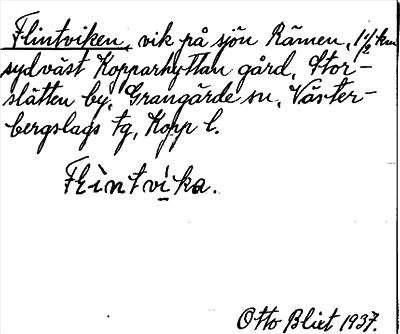 Flintviken, vik på sjön Rämen, 1 1/2 km
sydväst Kopparhyttan gård, Stor-
slätten by, Grangärde sn, Väster-
bergslags tg, Kopp l.
Flintvika.
Otto Blixt 1937.